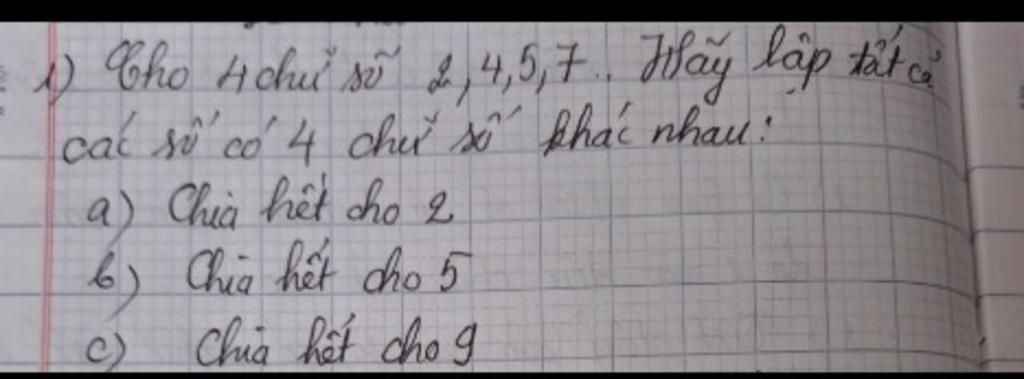 1) Cho 4 chữ số 2, 4, 5, 7. Hãy lập tất cả
các số có 4 chữ số khác nhau:
a) Chia hết cho 2
b) Chia hết cho 5
c) Chia hết cho 9